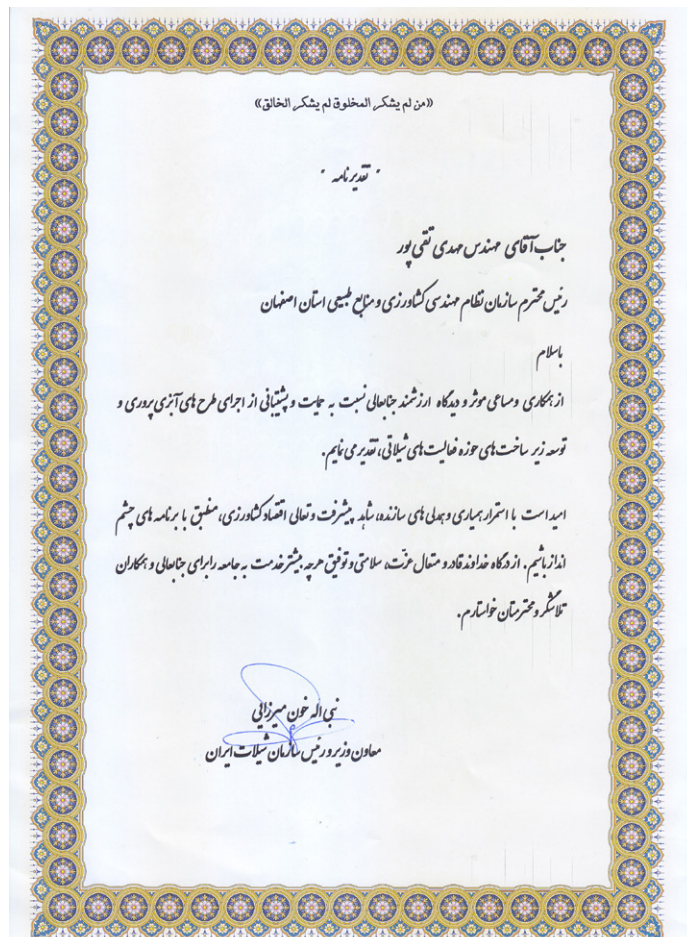 «من لم یشکر المخلوق لم یشکر الخالق»
" تقدیرنامه "
جناب آقای مهندس مهدی تقی پور
رئیس محترم سازمان نظام مهندسی کشاورزی و منابع طبیعی استان اصفهان
باسلام
از همکاری و مساعی موثر و دیدگاه ارزشمند جنابعالی نسبت به حمایت و پشتیبانی از اجرای طرح های آبزی پروری و
توسعه زیر ساخت های حوزه فعالیت های شیلاتی، تقدیر می نمایم.
امید است با استمرار همیاری و همدلی های سازنده، شاهد پیشرفت و تعالی اقتصاد کشاورزی، منطبق با برنامه های چشم
انداز باشیم. از درگاه خداوند قادر و متعال عزّت، سلامتی و توفیق هرچه بیشتر خدمت به جامعه را برای جنابعالی و همکاران
تلاشگر و محترمتان خواستارم.
نبی اله خون میرزائی
معاون وزیر و رئیس سازمان شیلات ایران